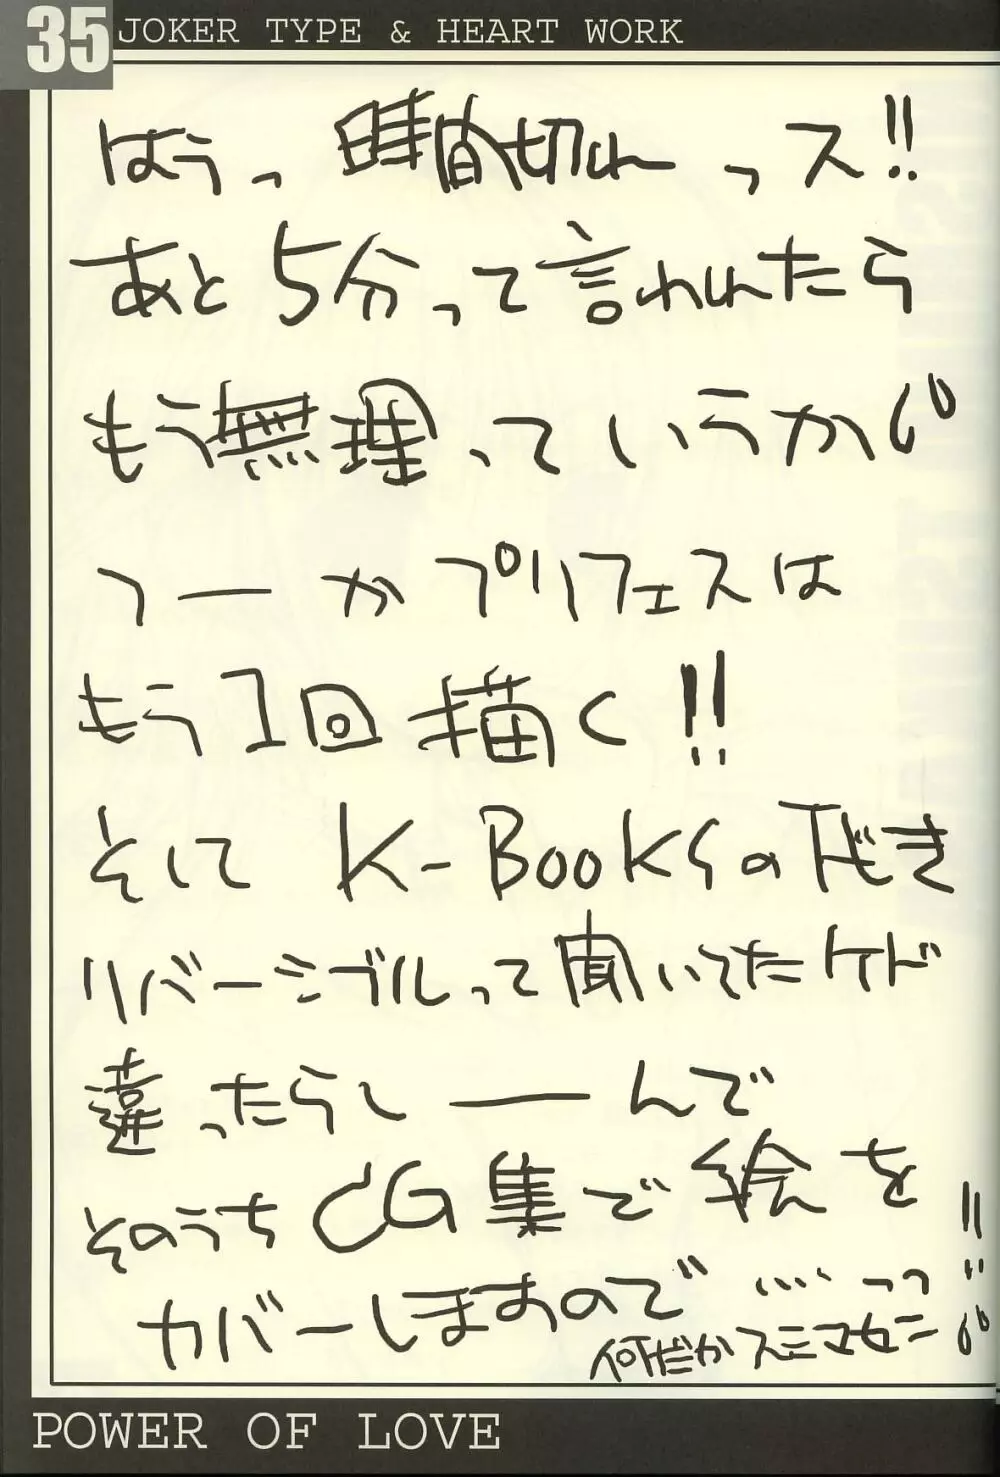 35
JOKER TYPE & HEART WORK
はうっ 時間切れっス!!
あと5分って言われたら
もう無理っていうか
つーかプリフェスは
もう1回描く!!
そして K-BOOKSの
リバーシブルって聞いてたケド
違ったらし――んで
そのうちCG集で絵を
カバーしますので ……っつ!!
何だかスミマセン
POWER OF LOVE